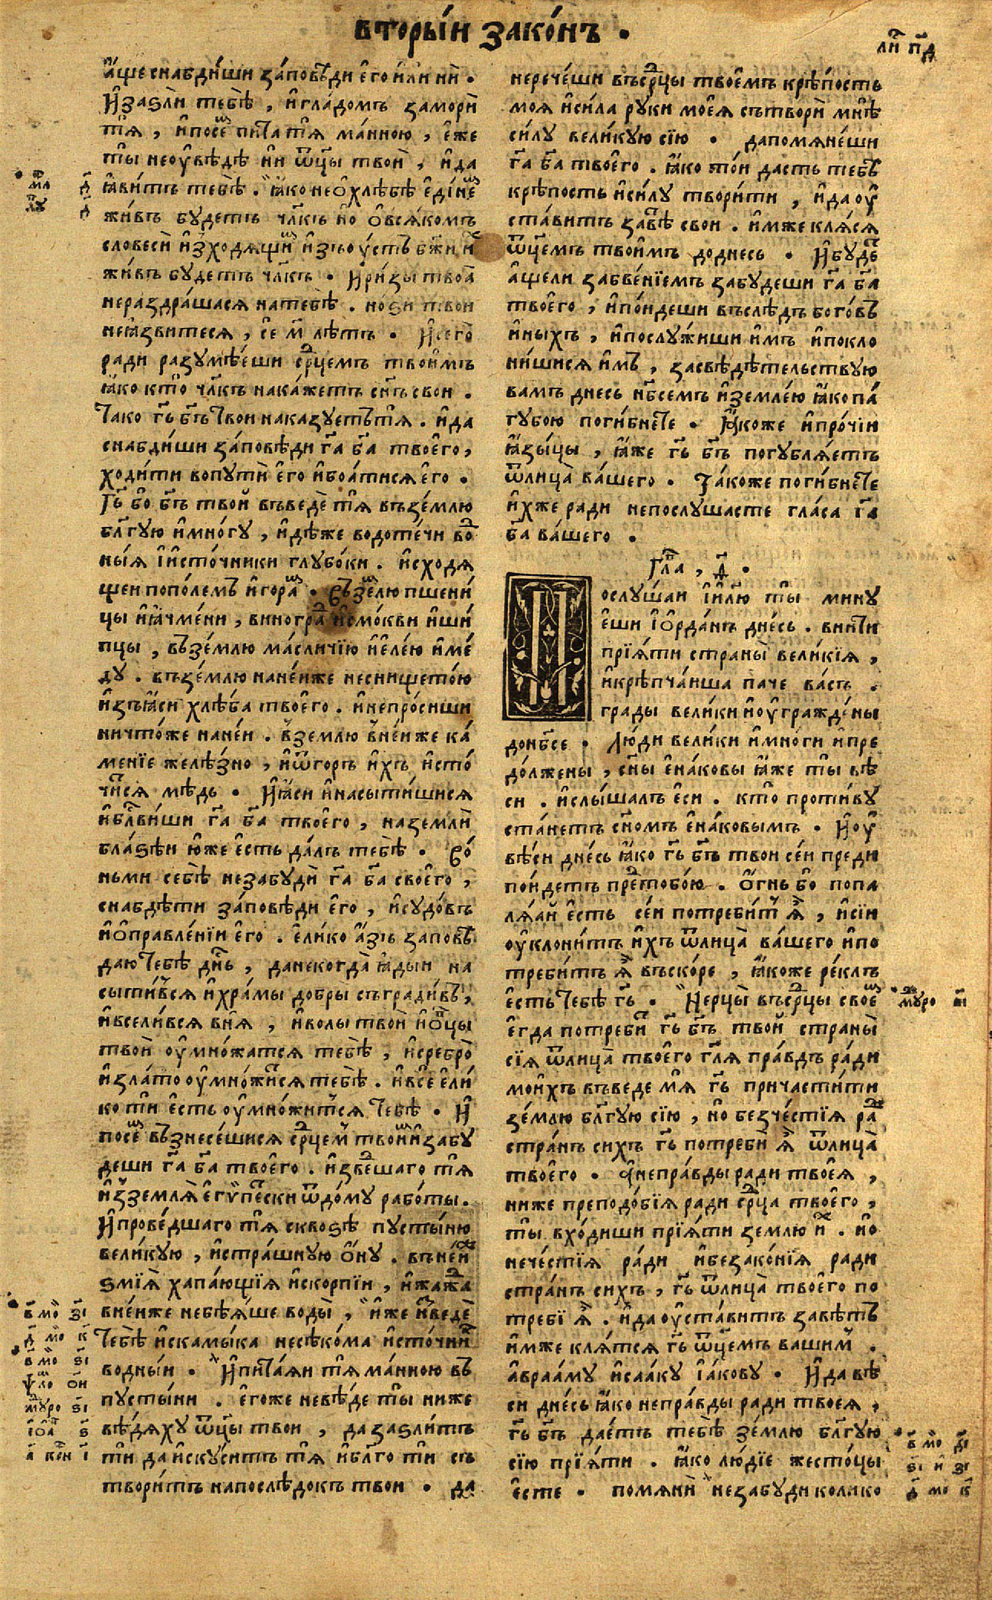 вторы́и зако́нъ .
ли́ п҃д
а҆́ще снабди́ши за́повѣди е҆го и҆ли нѝ .
И҆зазли тебѐ , и҆гла́домъ замори̂
тѧ , и҆посе́ пита тѧ ма́нною , е҆́же
ты неоу҆вѣдѣ ни ѿц҃ы твоѝ , и҆да
ꙗ҆ви́тъ тебѣ . ꙗ҆́ко не о҆хлѣбѣ е҆ди́не
жи́въ будетъ чл҃къ но о҆ вся́комъ
словесѝ и҆зходя́щи и҆зъоу́стъ бж҃и и
жи́въ бу́детъ чл҃къ . И҆ри́зы твоѧ̑
нераздра́шася натебѣ . но́зи твои
неꙗ҆звитеся , се м҃ лѣтъ . И҆сего̀
ради разумѣ́еши ср҃цемъ твоимъ
ꙗ҆́ко кто чл҃къ нака́жетъ сн҃ъ свои .
Тако гь҃ бг҃ъ твои нака́зуетъ тя . и҆да
снабди́ши за́повѣди га҃ ба҃ твоего̀ ,
ходи́ти вопути̂ е҆го и҆боя́тися е҆го .
Гь҃ бо бг҃ъ твой въведѐ тя въземлю
благу́ю и҆мно́гу , и҆дѣже водоте́чи во
ны́ꙗ и҆и҆сто́чники глубо́ки . и҆сходѧ
щеи пополемъ и҆гора . Въземлю пшени́
цы и҆ꙗ҆чме́ни , виногра и҆смо́кви и҆ши́
пцы , въземлю ма́сличїю и҆е҆ле́ю и҆ме́
ду . въземлю нане́иже неснището́ю
и҆зъꙗ҆си хлѣ́ба твоего . и҆непроси́ши
ничто́же нане́и . вземлю вне́иже ка́
менїе желѣ́зно , и҆ѿго́ръ и҆́хъ и҆сто
чи́ся мѣдь . И҆ꙗ҆си и҆насыти́шися
и҆бл҃ви́ши га҃ ба҃ твоего̀ , наземлѝ
бла́зѣи ю҆же е҆сть да́лъ тебѣ . Во́
ньми себѣ незабудѝ га҃ ба҃ своего̀ ,
снабдѣти за́повѣди е҆го , и҆судо́въ
и҆о҆правле́нїи е҆го . е҆лико а҆́зъ запов
даю тебѣ дн҃ь , данекогда̀ ꙗ҆ды́и на
сыти́вся и҆хра́мы добры съгради́въ ,
и҆всели́вся вня̀ , и҆волы̀ твоѝ и҆о҆́вцы
твоѝ оу҆мно́жатся тебѣ , и҆сребро̀
и҆зла́то оу҆мно́жися тебѣ . и҆все́ е҆ли́
ко ти е҆сть оу҆мно́жится тебѣ . И҆
посе́ възнесе́шися ср҃цем твоим и҆забу́
деши га҃ ба҃ твоего . и҆зве́шаго тя
и҆зземля̀ е҆ги́петски ѿдо́му рабо́ты .
И҆прове́дшаго тя скво́зѣ пусты́ню
вели́кую , и҆стра́шную о҆́ну . въне́и
змїѧ̀ хапа́ющїѧ и҆скорпїи , и҆жа́жа
вне́иже небѣ́ѧше воды̀ , и҆́же и҆зведѐ
тебѣ и҆ска́мыка несѣ́кома и҆сто́чни
водны́и . И҆пита́ѧи тя ма́нною въ
пусты́ни . е҆го́же невѣ́де ты ниже
вѣ́дяху ѿц҃ы твои , да зазли́тъ
ти да и҆скуси́тъ тя и҆бл҃го ти съ
твори́тъ напослѣ́докъ твои . да
нерече́ши въср҃цы твое́мъ крѣ́пость
моѧ̀ и҆си́ла руки̂ моеѧ̀ сътворѝ мнѣ
си́лу вели́кую сїю . дапомяне́ши
га҃ ба҃ твоего . ꙗ҆́ко то́и да́сть тебѣ
крѣ́пость и҆си́лу твори́ти , и҆да оу҆
ста́витъ заве́ свои . и҆мже кля́ся
ѿц҃емъ твои́мъ доднесь . И҆буде́
а҆́щели забве́нїемъ забу́деши га҃ ба҃
твоего , и҆по́идеши въслѣ́дъ бого́въ
и҆ны́хъ , и҆послужи́ши и҆мъ и҆покло
ни́шися и҆мъ , засвѣдѣ́тельствую
вамъ днесь нб҃семъ и҆земле́ю ꙗ҆́ко па́
губою поги́бнете . Ꙗ҆́коже и҆про́чїи
ꙗ҆зы́цы , ꙗ҆́же гь҃ бг҃ъ погубля́етъ
ѿлица̀ ва́шего . Та́коже поги́бнете
и҆́хже ради непослу́шасте гла́са га҃
ба҃ ва́шего .
Гла , д҃ .
Послу́шаи і҆и҃лю ты мину́
еши і҆о҆рда́нъ дне́сь . вни́ти
прїѧ́ти страны̀ вели́кїѧ ,
и҆крѣпча́иша паче ва́съ .
гра́ды вели́ки и҆оу҆гражде́ны
донб҃се . Лю́ди вели́ки и҆мно́ги и҆пре
до́лжены , сн҃ы е҆на́ковы ꙗ҆́же ты вѣ
си . и҆слы́шалъ е҆сѝ . кто проти́ву
ста́нетъ сн҃омъ е҆на́ковымъ . И҆оу҆
вѣ́си дне́сь ꙗ҆́ко гь҃ бг҃ъ твои се́и преди
по́идетъ пре́тобо́ю . О҆́гнь бо попа
лѧ́ꙗй е҆сть се́и потреби́т ꙗ҆̀ , и҆сїи
оу҆клони́тъ и҆́хъ ѿлица̀ ва́шего и҆по
треби́тъ ꙗ҆̀ въско́ре , ꙗ҆́коже ре́клъ
е҆сть тебѣ гь҃ . Нерцы̀ въср҃цы свое́
е҆гда потреби́ гь҃ бг҃ъ твой страны̀
сїѧ̀ ѿлица̀ твоего гл҃я пра́вдъ ра́ди
мои́хъ въведе мѧ гь҃ причасти́ти
зе́млю бл҃гу́ю сїю , но безче́стїѧ ра́
стра́нъ си́хъ гь҃ потребѝ ꙗ҆̀ ѿлица̀
твоего . Нинепра́вды ра́ди твоеѧ̀ ,
ниже преподо́бїѧ ра́ди ср҃ца твоего ,
ты вхо́диши прїѧ́ти землю и́ . но
нече́стїѧ ра́ди и҆безако́нїѧ ра́ди
стра́нъ си́хъ , гь҃ ѿлица̀ твоего по
требѝ ꙗ҆̀ . и҆да оу҆ста́витъ завѣ́тъ
и҆мже кля́тся гь҃ ѿц҃емъ ва́шим .
а҆враа́му и҆саа́ку і҆а́кову . И҆да вѣ
си дне́сь ꙗ҆́ко непра́вды ра́ди твоеѧ̀ ,
гь҃ бг҃ъ дае́тъ тебѣ зе́млю бл҃гу́ю
сїю прїѧ́ти . ꙗ҆́ко лю́дїе жесто́цы
е҆сте . помянѝ незабу́ди коли́ко